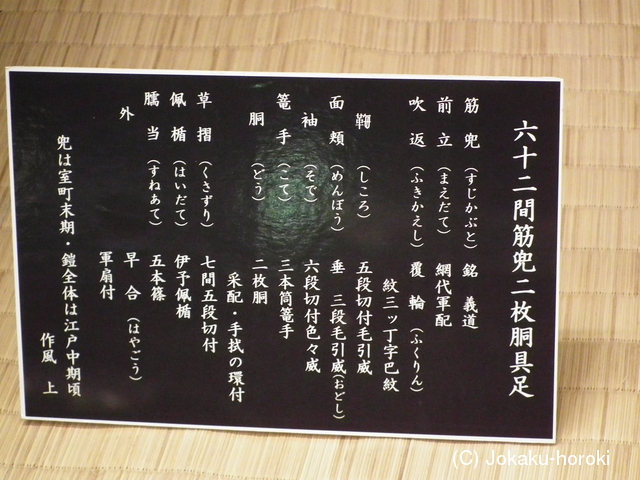 六十二間筋兜二枚胴具足
筋兜（すじかぶと）銘　義道
前立（まえだて）網代軍配
吹返（ふきかえし）覆輪（ふくりん）
紋三ッ丁字巴紋
鞠（しころ）五段切付毛引威
面頬（めんぼう）垂　三段毛引威（おどし）
袖（そで）六段切付色々威
篭手（こて）三本筒篭手
胴（どう）二枚胴
采配・手拭の環付
草摺（くさずり）七間五段切付
佩楯（はいだて）伊予佩楯
臑当（すねあて）五本篠
外　早合（はやごう）
軍扇付
兜は室町末期・鎧全体は江戸中期頃
作風　上
(C) Jokaku-horoki